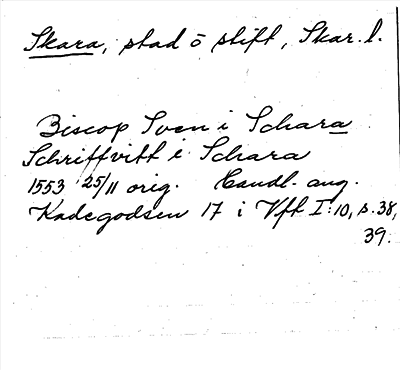 Skara, stad o stift, Skar. l.
Biscop Sven i Schara
Schriffvitt i Schara
1553 25/11 orig. Handl. ang.
Kadegodsen 17 i Vft I:10, s. 38,
39.